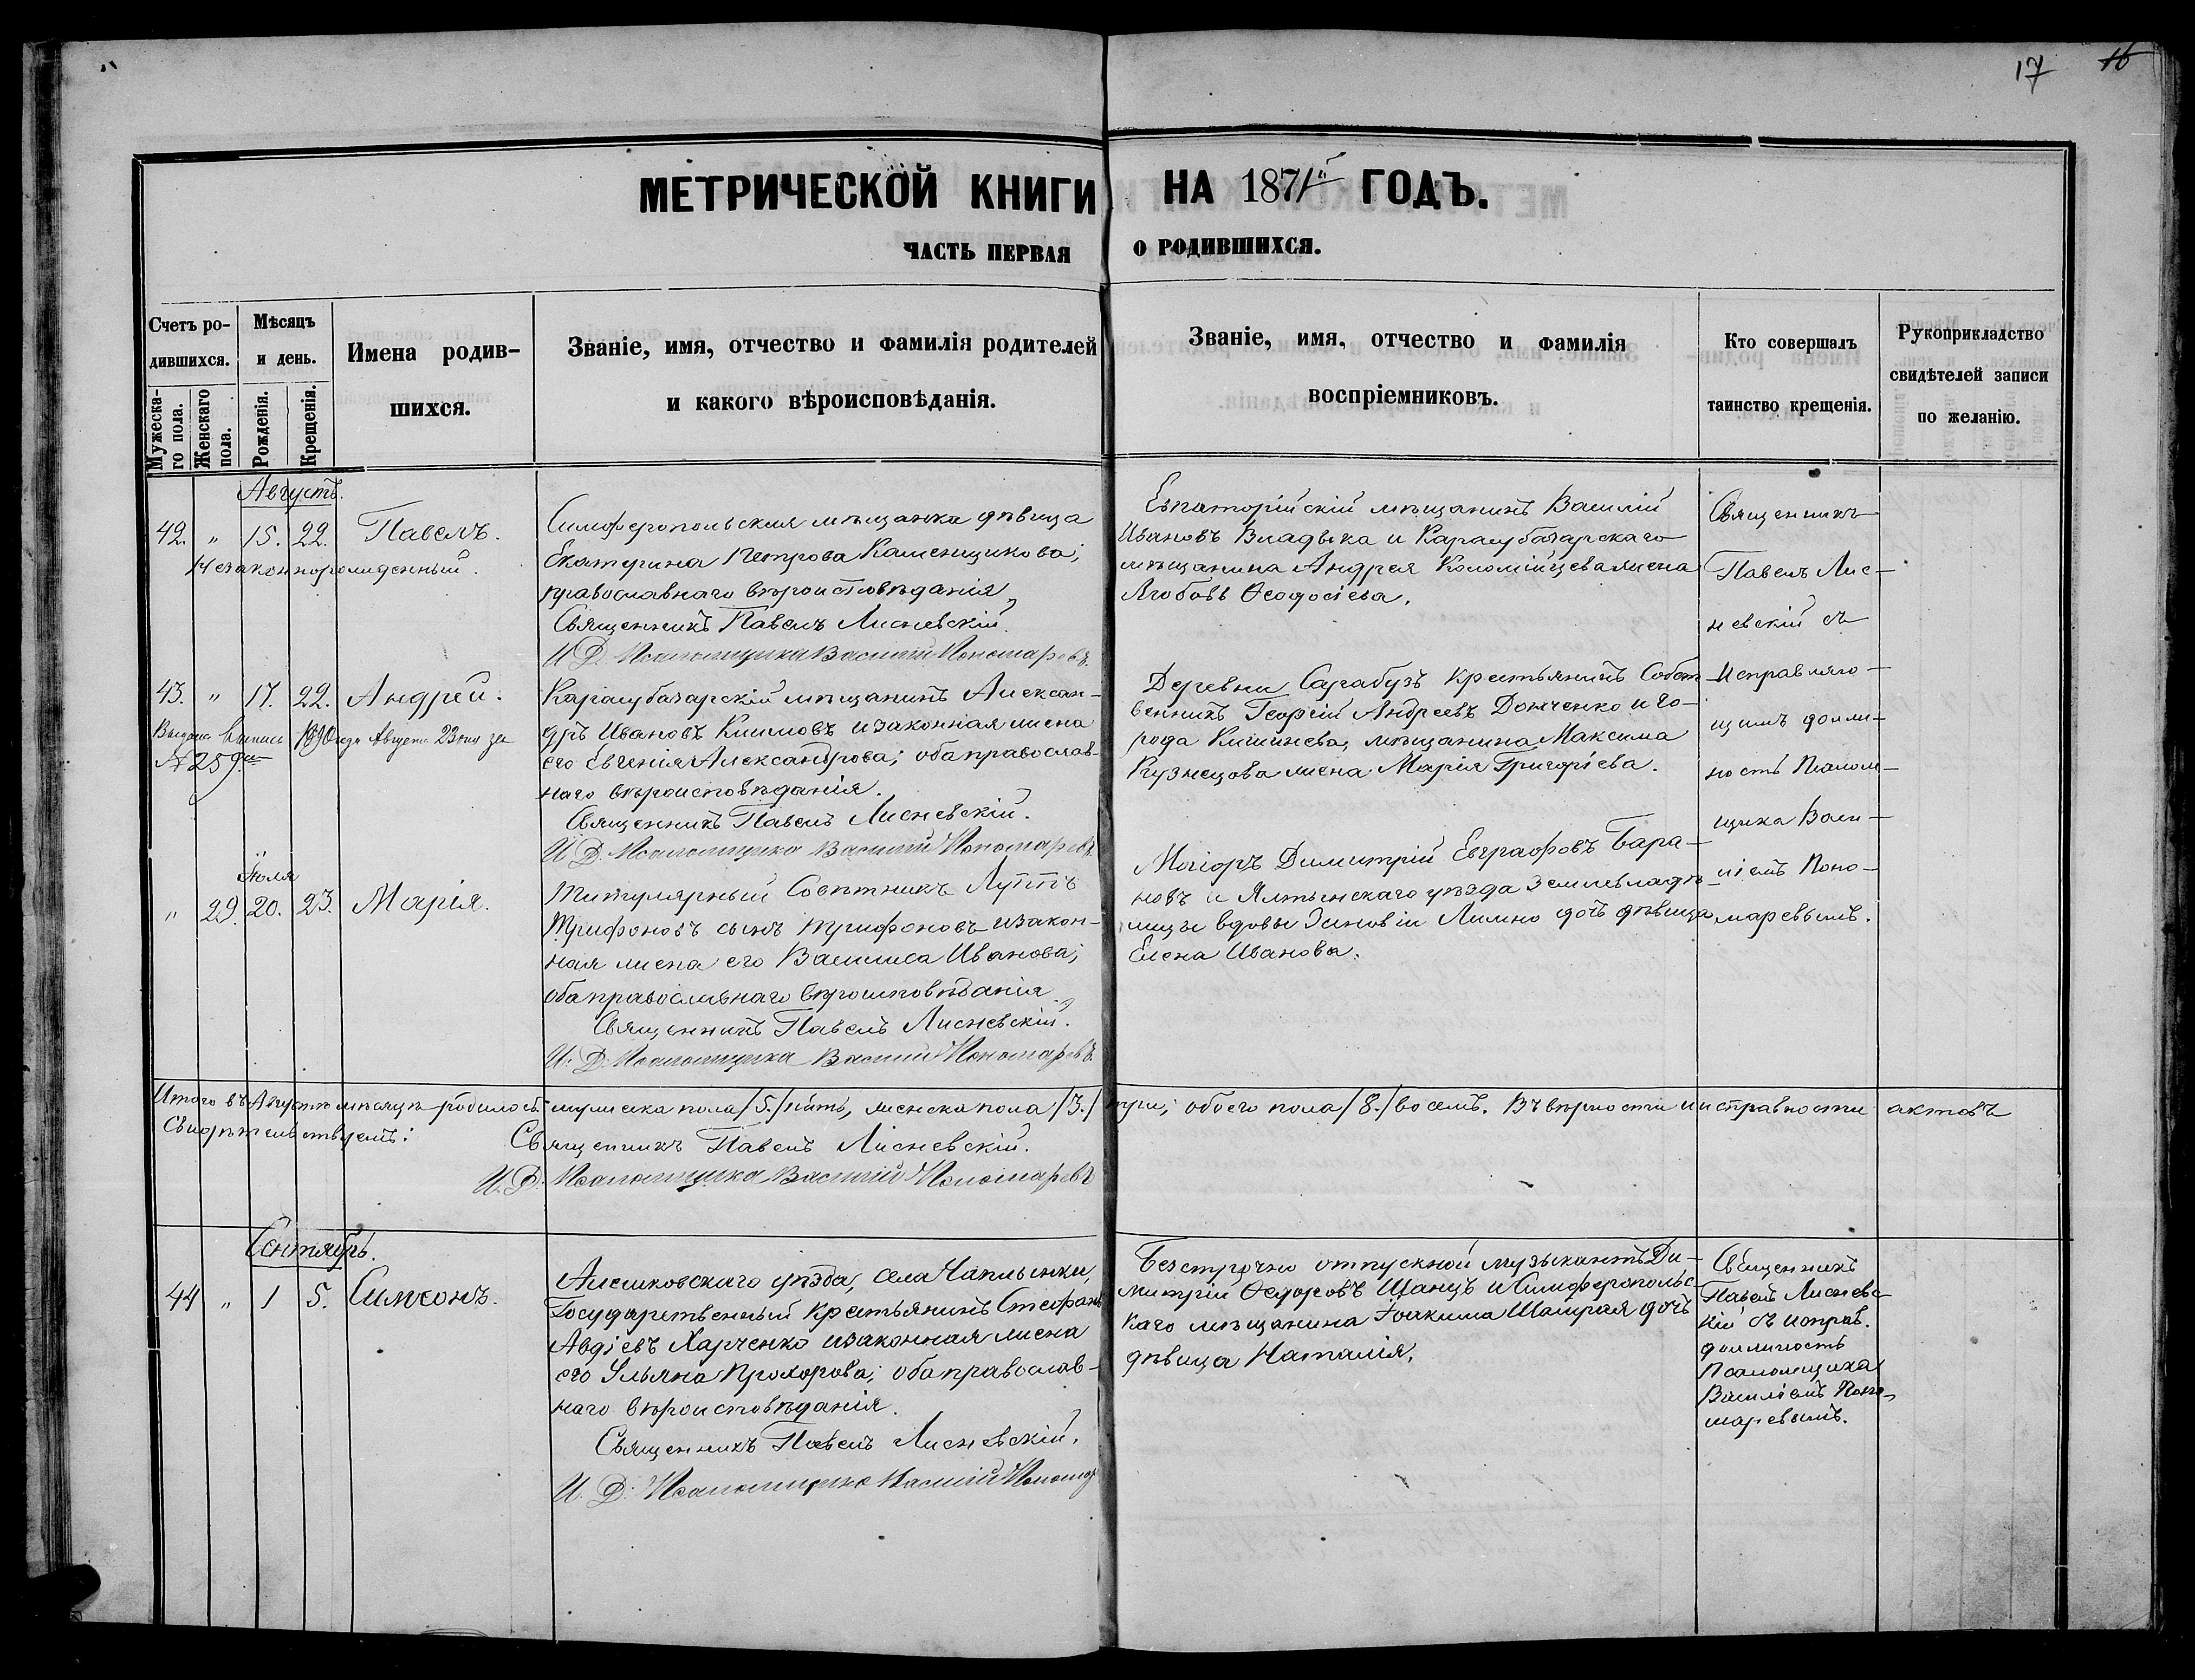 17 16
МЕТРИЧЕСКОЙ КНИГИ НА 1871й ГОДЪ.
ЧАСТЬ ПЕРВАЯ О РОДИВШИХСЯ.
Счетъ ро-
дившихся.
Мужеска-
го пола.
Женскаго
пола.
Мѣсяцъ
и день.
Рожденія.
Крещенія.
Имена родив-
шихся.
Званіе, имя, отчество и фамилія родителей
и какого вѣроисповѣданія.
Званіе, имя, отчество и фамилія
воспріемниковъ.
Кто совершалъ
таинство крещенія.
Рукоприкладство
свидѣтелей записи
по желанію.
Августъ.
42. " 15. 22. Павелъ.
Незаконнорожденный.
Симферопольская мѣщанка дѣвица
Екатерина Петрова Каменщикова;
православнаго вѣроисповѣданія
Священникъ Павелъ Лисневскій.
И. Д. Псаломщика Василій Пономаревъ.
Евпаторійскій мѣщанинъ Василій
Ивановъ Владыка и Карасубазарскаго
мѣщанина Андрея Коломійцева жена
Любовь Ѳеодосіева.
Священникъ
Павелъ Лис-
невскій съ
исправляю-
щимъ долж-
ность Псалом-
щика Васи-
ліемъ Поно-
маревымъ.
43. " 17. 22. Андрей.
Выдана выпись 1890 года Августа 23 дня за
№ 259.
Карасубазарскій мѣщанинъ Алексан-
дръ Ивановъ Климовъ и законная жена
его Евгенія Александрова; оба православ-
наго вѣроисповѣданія.
Священникъ Павелъ Лисневскій.
И. Д. Псаломщика Василій Пономаревъ.
Деревни Сарабузъ крестьянинъ Собст-
венникъ Георгій Андреевъ Донченко и го-
рода Кишинева, мѣщанина Максима
Кузнецова жена Марія Григорьева.
Іюля
" 29. 20. 23. Марія.
Титулярный Совѣтникъ Луппъ
Трифоновъ сынъ Трифоновъ и закон-
ная жена его Василиса Иванова;
оба православнаго вѣроисповѣданія.
Священникъ Павелъ Лисневскій.
И. Д. Псаломщика Василій Пономаревъ.
Маіоръ Димитрій Евграфовъ Бара-
новъ и Ялтинскаго уѣзда Землевладѣ-
лицы вдовы Зиновіи дочь дѣвица
Елена Иванова.
Итого въ Августѣ мѣсяцѣ родилось: мужеска пола /5./ пять, женска пола /3./ три; обоего пола /8./ восемь. Въ вѣрности и исправности актовъ
Свидѣтельствуемъ: Священникъ Павелъ Лисневскій.
И. Д. Псаломщика Василій Пономаревъ
Сентябрь.
44 " 1 5. Симеонъ.
Алешковскаго уѣзда, села Чаплынки,
Государственный крестьянинъ Стефанъ
Авдіевъ Харченко и законная жена
его Ульяна Прохорова; оба православ-
наго вѣроисповѣданія.
Священникъ Павелъ Лисневскій.
И. Д. Псаломщика Василій Пономар
Безсрочно отпускной музыкантъ Ди-
митрій Ѳедоровъ Шанцъ и Симферопольс-
каго мѣщанина Іоакима дочь
дѣвица Наталія.
Священникъ
Павелъ Лисневс-
кій съ исправ.
должность
Псаломщика
Василіемъ Поно-
маревымъ.